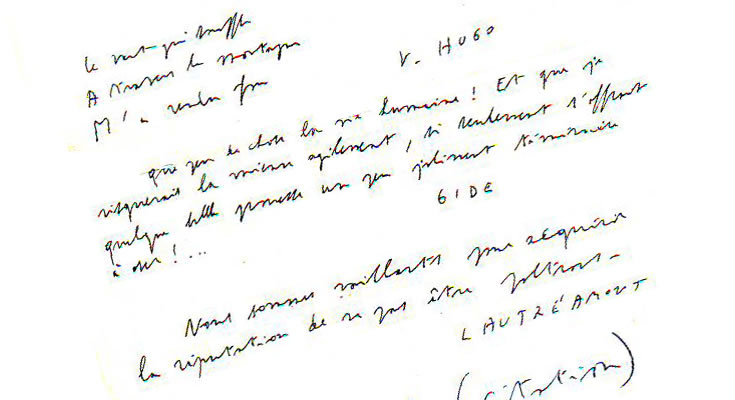 Le vent qui souffle
A travers la montagne
M'a rendu fou
V. HUGO
que peu de chose la vie humaine ! Et que je
risquerais la mienne agilement, si seulement s'offrait
quelque belle prouesse un peu joliment téméraire
à oser ! ...
GIDE
Nous sommes vaillants pour acquérir
la réputation de ne pas être poltrons -
LAUTRÉAMONT
(citation)